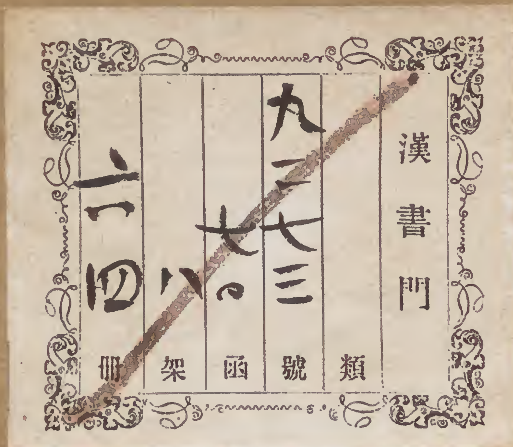 漢書門
類
九二七三號
七〇函
八架
六四冊